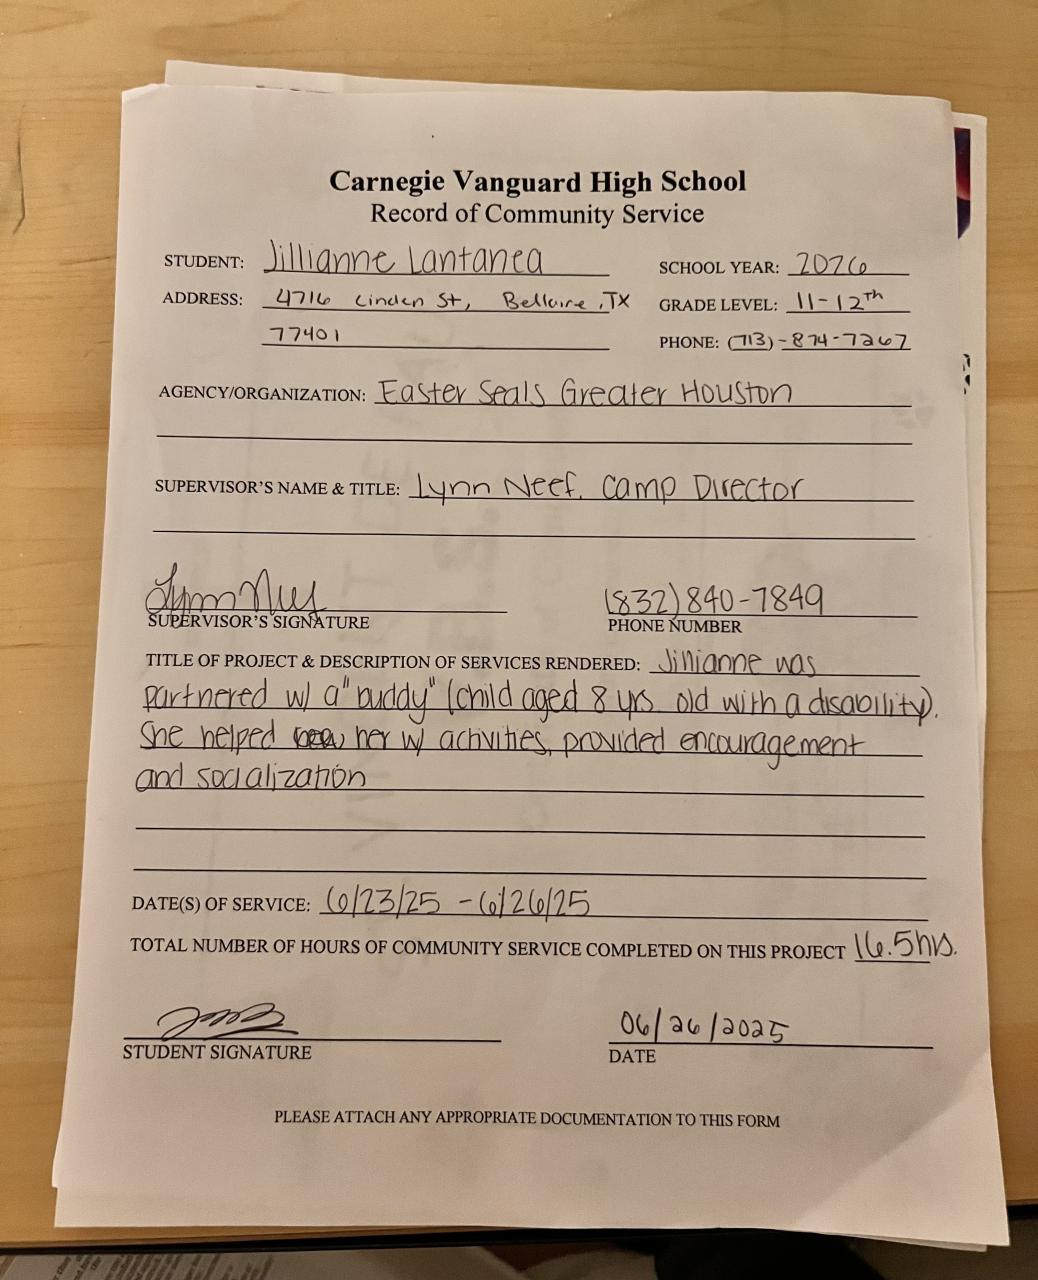 Carnegie Vanguard High School
Record of Community Service
STUDENT: Jillianne Lantanea
SCHOOL YEAR: 2026
ADDRESS: 4716 Linden St, Bellaire, TX
GRADE LEVEL: 11-12th
77401
PHONE: (713)-874-7267
AGENCY/ORGANIZATION: Easter Seals Greater Houston
SUPERVISOR'S NAME & TITLE: Lynn Neef, Camp Director
Lynn Neef
(832) 840-7849
SUPERVISOR'S SIGNATURE
PHONE NUMBER
TITLE OF PROJECT & DESCRIPTION OF SERVICES RENDERED: Jillianne was
partnered w/ a "buddy" (child aged 8 yrs. old with a disability).
She helped her w/ activities, provided encouragement
and socialization
DATE(S) OF SERVICE: 6/23/25 - 6/26/25
TOTAL NUMBER OF HOURS OF COMMUNITY SERVICE COMPLETED ON THIS PROJECT 16.5hrs.
06/26/2025
STUDENT SIGNATURE
DATE
PLEASE ATTACH ANY APPROPRIATE DOCUMENTATION TO THIS FORM